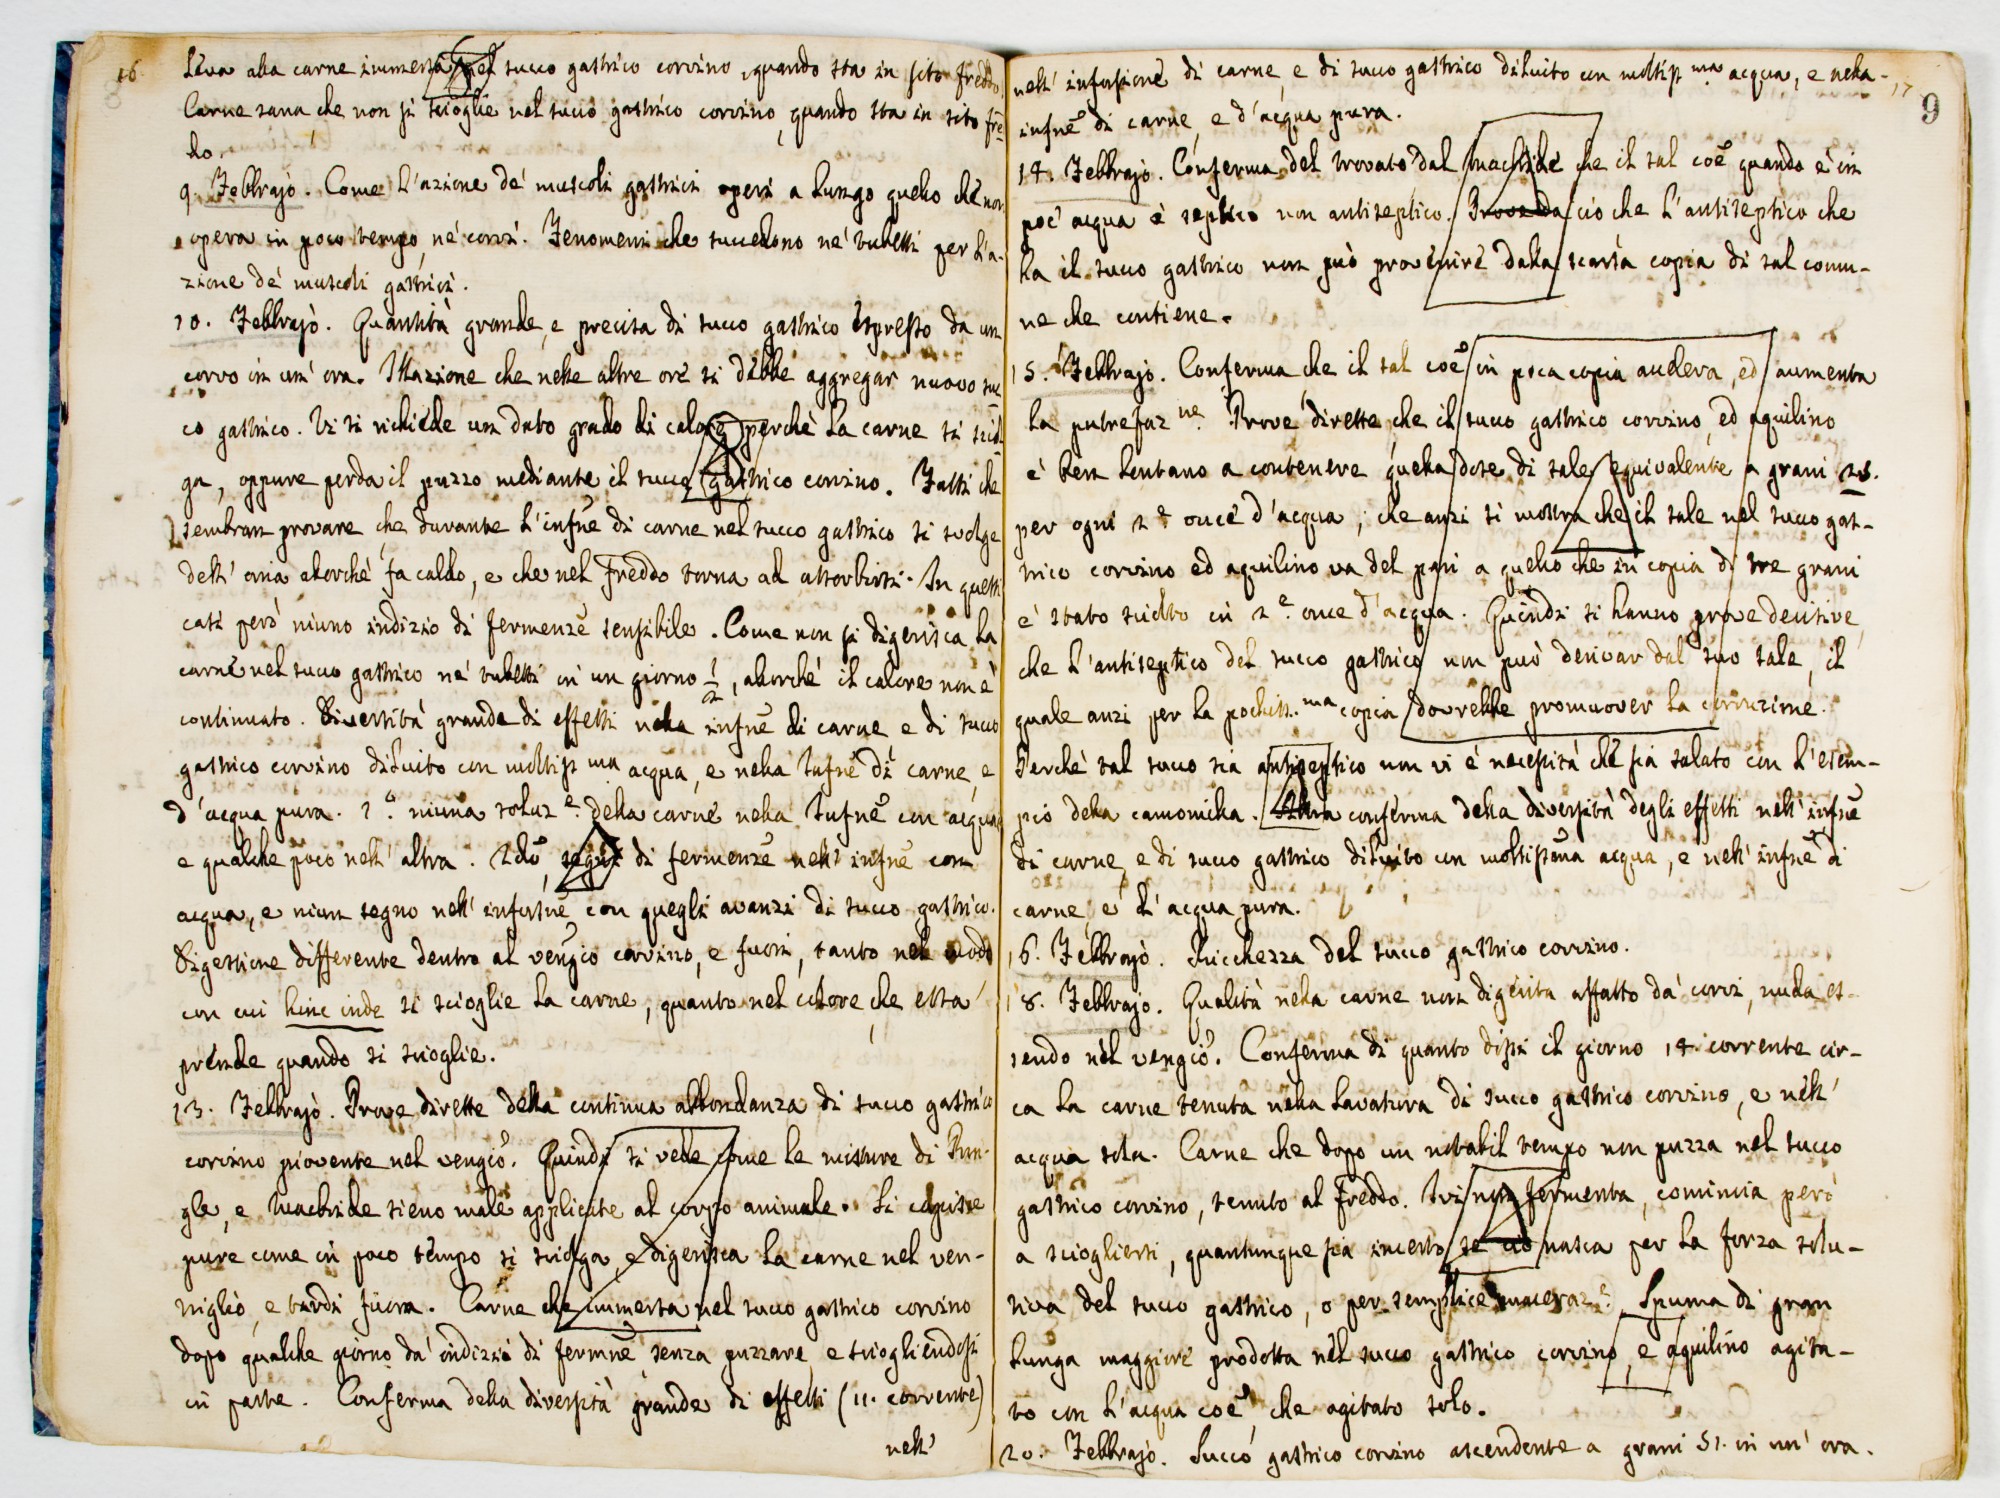 16
leva alla carne immersa nel succo gastrico corvino, quando sta in sito freddo.
Carne sana, che non si scioglie nel succo gastrico corvino, quando sta in sito fre-
do.
9. Febbrajo. Come l'azione de' muscoli gastrici operi a lungo quello che non
opera in poco tempo, ne' corvi. Fenomeni che succedono ne' tubetti per l'a-
zione de' muscoli gastrici.
10. Febbrajo. Quantità grande, e precisa di succo gastrico espresso da un
corvo in un' ora. Illazione che nelle altre ore si debbe aggregar nuovo suc
co gastrico. Vi si richiede un dato grado di calore perchè la carne si sciol
ga, oppure perda il puzzo mediante il succo gastrico corvino. Fatti che
sembran provare, che durante l'infne di carne nel succo gastrico si svolge
dell' aria allorchè fa caldo, e che nel freddo torna ad assorbirsi. In questi
casi però niuno indizio di fermenze sensibile. Come non si digerisca la
carne nel succo gastrico ne' tubetti in un giorno 1/2, allorchè il calore non è
continuato. Diversità grande di effetti nella infne di carne e di succo
gastrico corvino diluito con moltiss ma acqua, e nella Infne di carne, e
d'acqua pura. 1.o niuna soluz e. della carne nella Infne con acqua,
e qualche poco nell' altra. 2do, segni di fermenze nell' infne con
acqua, e niun segno nell' infusne con quegli avanzi di succo gastrico.
Digestione differente dentro al vengio corvino, e fuori, tanto nel modo
con cui hinc inde si scioglie la carne, quanto nel colore, che essa
prende quando si scioglie.
13. Febbrajo. Prove dirette della continua abbondanza di succo gastrico
corvino piovente nel vengio. Quindi si vede come le misture di Prin-
gle, e Macbride sieno male applicate al corpo animale. Si capisce
pure come in poco tempo si sciolga, e digerisca la carne nel ven-
triglio, e tardi fuora. Carne che immersa nel succo gastrico corvino
dopo qualche giorno da' indizio di fermne senza puzzare e sciogliendosi
in parte. Conferma della diversità grande di effetti (11. corrente)
nell'
17
9
nell' infusione di carne, e di succo gastrico diluito con moltiss ma acqua, e nella
infne di carne, e d'acqua pura.
14. Febbrajo. Conferma del trovato dal Macbride che il sal coe quando è in
poc' acqua è septico non antiseptico. Prova da ciò che l'antiseptico che
ha il succo gastrico non può provenire dalla scarsa copia di sal comu-
ne che contiene.
15. Febbrajo. Conferma che il sal coe in poca copia accelera, ed aumenta
la putrefaz ne. Prove dirette, che il succo gastrico corvino, ed aquilino
è ben lontano a contenere quella dose di sale equivalente a grani 25.
per ogni 2 e oncie d'acqua; che anzi si mostra che il sale nel succo gas-
trico corvino ed aquilino va del pari a quello che in copia di tre grani
è stato sciolto in 2 e. once d'acqua. Quindi si hanno prove decisive,
che l'antiseptico del succo gastrico non può derivar dal suo sale, il
quale anzi per la pochiss. ma copia dovrebbe promuover la corruzime.
Perchè tal succo sia antiseptico non vi è necessità che sia salato con l'esem-
pio della camomilla. Altra conferma della diversità degli effetti nell' infne
di carne, e di succo gastrico diluito con moltissima acqua, e nell' infne di
carne, e d'acqua pura.
16. Febbrajo. Ricchezza del succo gastrico corvino.
18. Febbrajo. Qualità nella carne non digerita affatto da' corvi, nuda es-
sendo nel vengio. Conferma di quanto dissi il giorno 14. corrente cir-
ca la carne tenuta nella lavatura di succo gastrico corvino, e nell'
acqua sola. Carne che dopo un notabil tempo non puzza nel succo
gastrico corvino, tenuto al freddo. Ivi non fermenta, comincia però
a sciogliersi, quantunque sia incerto se ciò nasca per la forza solu-
tiva del succo gastrico, o per semplice maceraz e. Spuma di gran
lunga maggiore prodotta nel succo gastrico corvino, e aquilino agita-
to con l'acqua coe, che agitato solo.
20. Febbrajo. Succo gastrico corvino ascendente a grani 51. in un' ora.